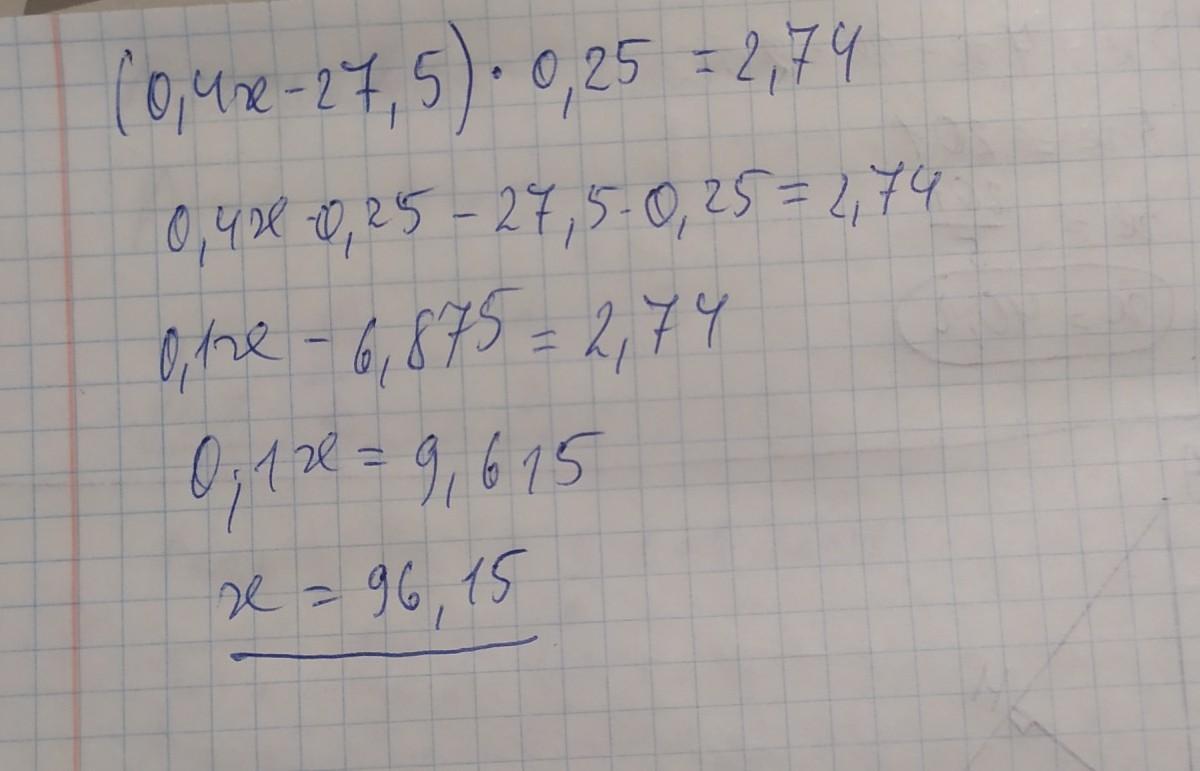 (0,4x-27,5)·0,25 =2,74
0,4x·0,25-27,5·0,25=2,74
0,1x-6,875=2,74
0,1x=9,615
x=96,15